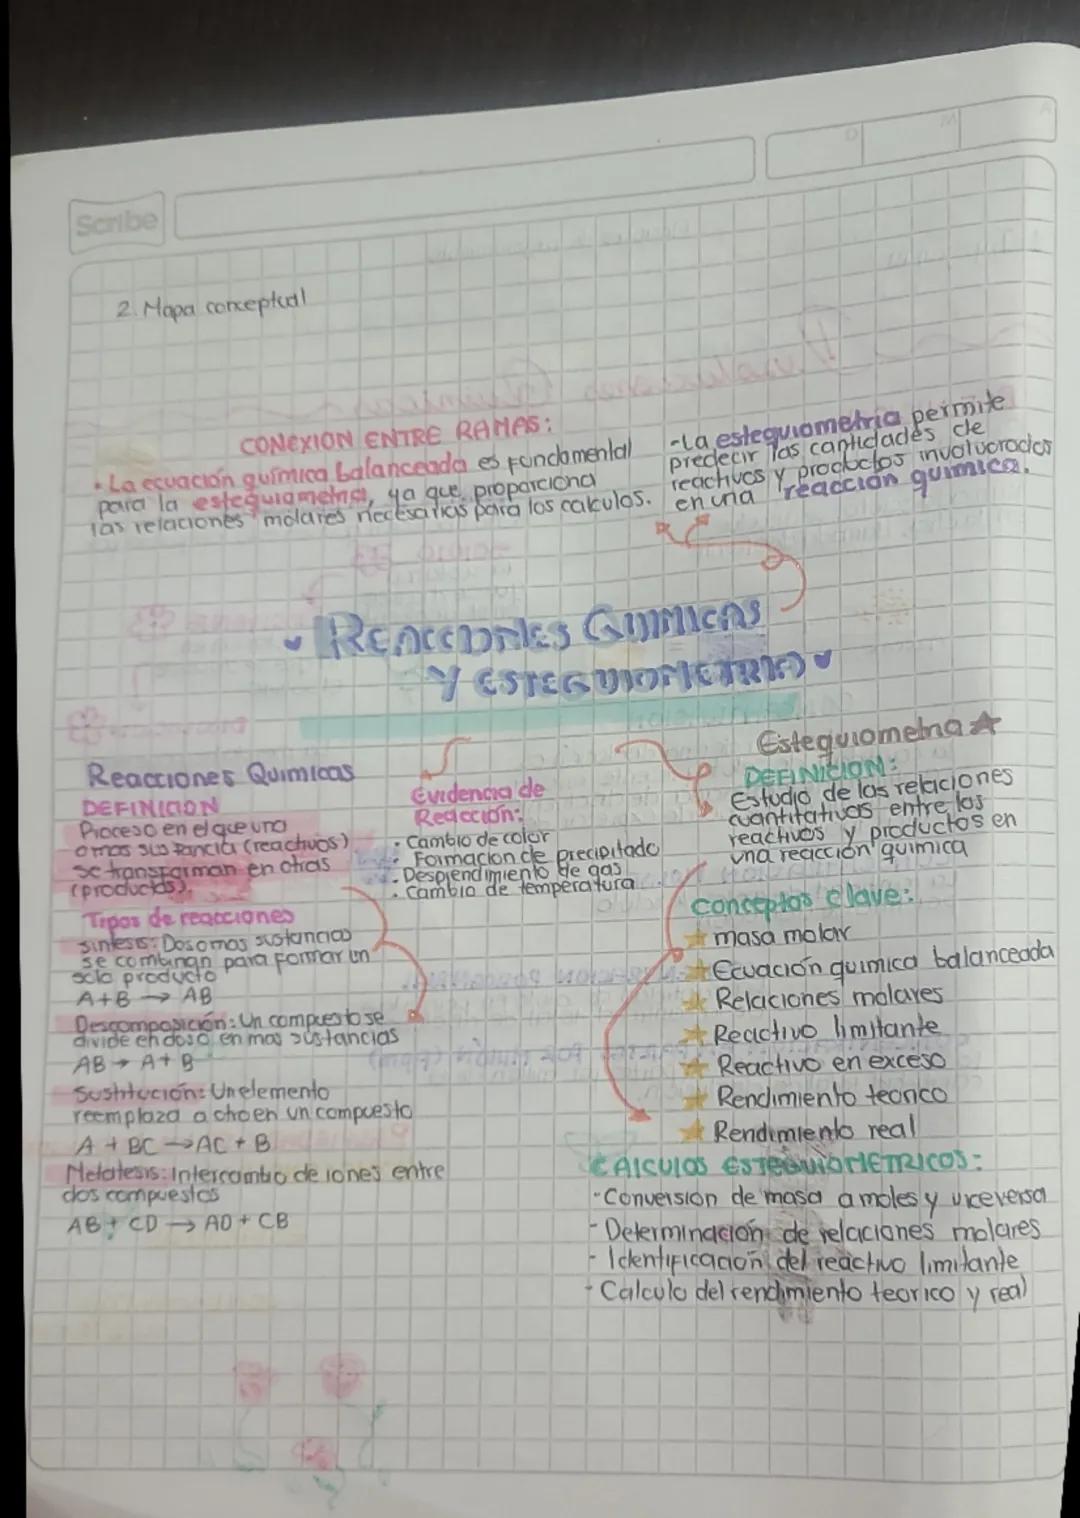 Scribe
2. Mapa conceptual
CONEXION ENTRE RAMAS:
• La ecuación química balanceada es fundamental
para la estequiometria, ya que proporciona
las relaciones molares necesarias para los calculos.
-La estequiometria permite
predecir las cantidades de
reactivos y productos involucrados
en una reacción química.
REACCIONES QUIMICAS
Y ESTEQUIOMETRIA
Reacciones Quimicas
DEFINICION
Proceso en el que una
o mas sustancia (reactivos)
se transforman en otras
(productos).
Tipos de reacciones
sintesis: Dos o mas sustancias
se combinan para formar un
solo producto
A+B → AB
Descomposición: Un compuesto se
divide en dos o en mas sustancias
AB → A+B
Sustitución: Un elemento
reemplaza a otro en un compuesto
A + BC → AC + B
Metatesis: Intercambio de iones entre
dos compuestos
AB + CD → AD + CB
Evidencia de
Reacción:
• Cambio de color
• Formacion de precipitado
• Desprendimiento de gas
• Cambio de temperatura
Estequiometria
DEFINICION:
Estudio de las relaciones
cuantitativas entre los
reactivos y productos en
una reacción quimica
Conceptos clave:
masa molar
Ecuación quimica balanceada
Relaciones molares
Reactivo limitante
Reactivo en exceso
Rendimiento teorico
Rendimiento real
CALCULOS ESTEQUIOMETRICOS:
-Conversion de masa a moles y viceversa
- Determinación de relaciones molares
- Identificacion del reactivo limitante
- Calculo del rendimiento teorico y real